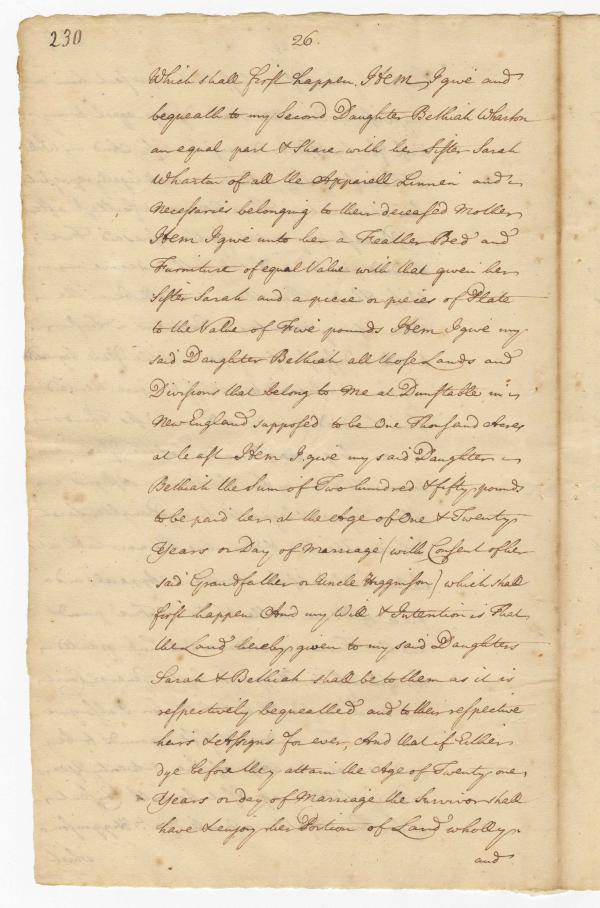 230
26.
Which shall first happen. Item I give and
bequeath to my Second Daughter Bethiah Wharton
an equal part & Share with her Sister Sarah
Wharton of all the Apparell Linnen and
Necessaries belonging to their deceased Mother
Item I give unto her a Feather Bed and
Furniture of equal Value with that given her
Sister Sarah and a piece or pieces of Plate
to the Value of Five pounds Item I give my
said Daughter Bethiah all those Lands and
Divisions that belong to Me at Dunstable in
New England supposed to be One Thousand Acres
at least Item I give my said Daughter
Bethiah the Sum of Two hundred & fifty pounds
to be paid her at the Age of One & Twenty
Years or Day of Marriage (with Consent of her
said Grandfather or Uncle Higginson) which shall
first happen And my Will & Intention is That
the Land hereby given to my said Daughters
Sarah & Bethiah shall be to them as it is
respectively bequeathed and to their respective
heirs & Assigns for ever, And that if Either
dye before they attain the Age of Twenty one
Years or day of Marriage the Survivor shall
have & enjoy her Portion of Land wholly
and